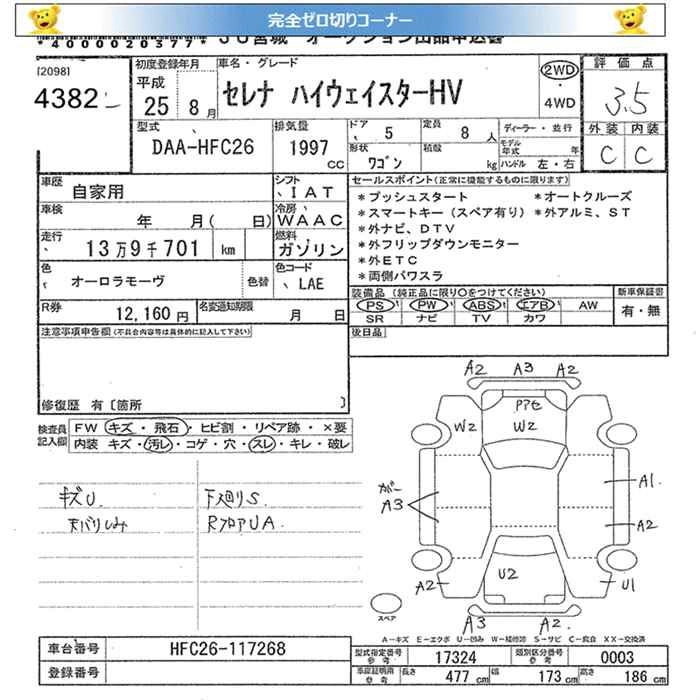 完全ゼロ切りコーナー
*4000020377* JU宮城 オークション出品申込書
[2098]
4382
初度登録年月
平成
25 8月
車名・グレード
セレナ ハイウェイスターHV
2WD
・
4WD
評価点
3.5
外装 内装
C C
型式
DAA-HFC26
排気量
1997
cc
ドア
5
定員
8 人
形状
ワゴン
積数
kg
ディーラー・並行
モデル年式 年
ハンドル 左・右
車歴
自家用
シフト
IAT
車検
年 月( 日)
冷房
WAAC
走行
13万9千701 km
燃料
ガソリン
色
オーロラモーヴ
色替
色コード
LAE
R券
12,160 円
名変通知期限
月 日
セールスポイント(正常に機能するものに限ります)
*プッシュスタート *オートクルーズ
*スマートキー(スペア有り) *外アルミ、ST
*外ナビ、DTV
*外フリップダウンモニター
*外ETC
*両側パワスラ
装備品(純正品に限り○をつけてください)
PS PW ABS エアB AW
SR ナビ TV カワ
新車保証書
有・無
後日品
注意事項申告欄(不具合内容等は具体的に記入して下さい)
修復歴 有〔箇所 〕
検査員記入欄
FW キズ・飛石・ヒビ割・リペア跡・×要
内装 キズ・汚レ・コゲ・穴・スレ・キレ・破レ
キズU 下廻りS.
天バリしみ RフロアUA.
A2 A3 A2
W2 W2
カバー
A3
A1.
A2
A2
U2
U1
スペア
A3 A2.
A-キズ E-エクボ U-凹み W-補修跡 S-サビ C-腐食 XX-交換済
車台番号
HFC26-117268
登録番号
型式指定番号
参考
17324
類別区分番号
参考
0003
車庫証明用
参考
長さ 477 cm
幅 173 cm
高さ 186 cm